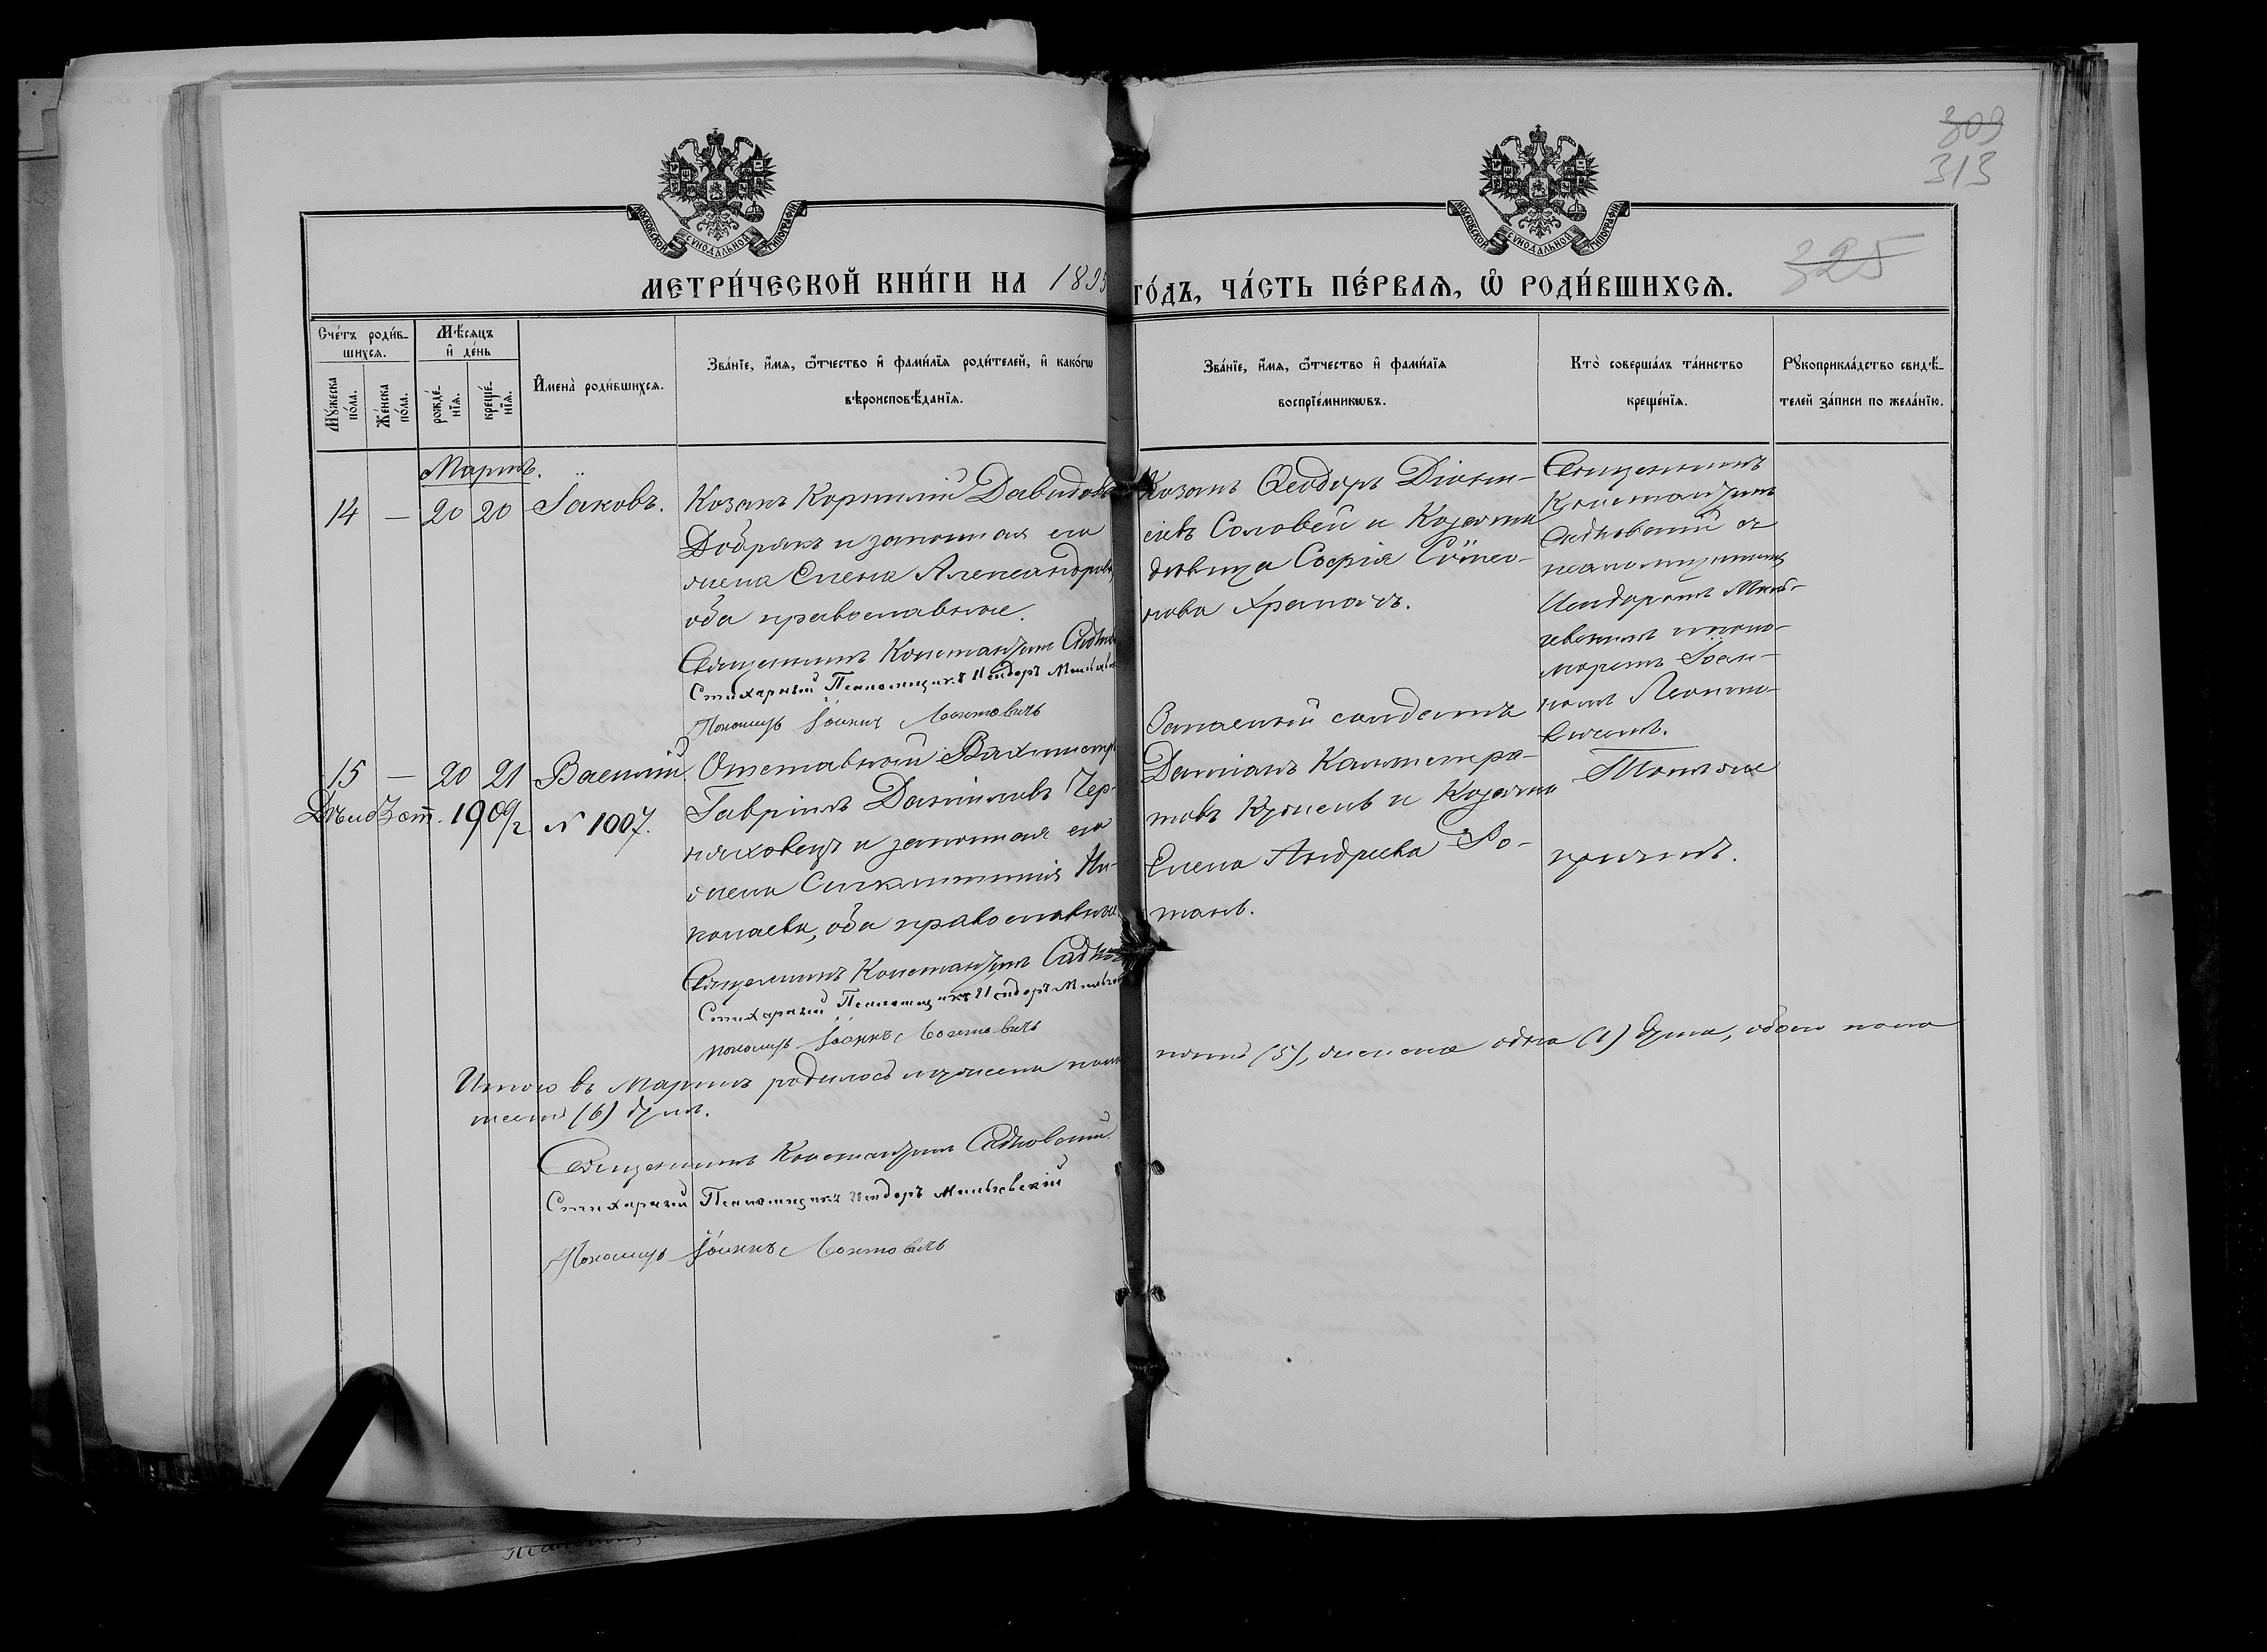 309
313
325
МОСКОВСКОЙ СѴНОДАЛЬНОЙ ТИПОГРАФІИ
МОСКОВСКОЙ СѴНОДАЛЬНОЙ ТИПОГРАФІИ
МЕТРИ́ЧЕСКОЙ КНИ́ГИ НА 1895 ГО́ДЪ, ЧА́СТЬ ПЕ́РВАѦ, Ѡ҆ РОДИ́ВШИХСѦ.
Сче́тъ роди́в-
шихсѧ.
Мꙋ́жеска по́ла.
Же́нска по́ла.
Мѣ́сѧцъ
и҆ де́нь
рожде́-
нїѧ.
креще́-
нїѧ.
И҆мена̀ роди́вшихсѧ.
Зва́нїе, и҆́мѧ, ѻ҆́тчество и҆ фами́лїѧ роди́телей, и҆ како́гѡ
вѣроисповѣ́данїѧ.
Зва́нїе, и҆́мѧ, ѻ҆́тчество и҆ фами́лїѧ
воспрїе́мникѡвъ.
Кто̀ соверша́лъ та́инство
креще́нїѧ.
Рꙋкоприкла́дство свидѣ́-
телей за́писи по жела́нїю.
Мартъ.
14 — 20 20 Іаковъ.
Козакъ Корнилій Давидовъ
Добрякъ и законная его
жена Елена Александрова,
оба православные.
Священникъ Константинъ Садковскій
Стихарный Псаломщикъ Исидоръ Мильчевскій
Пономарь Іоаннъ Леонтовичъ
Козакъ Ѳеодоръ Діони-
сіевъ Соловей и Козачка
вдовица Софія Симео-
нова Храпачъ.
Священникъ
Константинъ
Садковскій съ
псаломщикомъ
Исидоромъ Миль-
чевскимъ и поно-
маремъ Іоан-
номъ Леонто-
вичемъ.
15 — 20 21 Василій.
19 09/2 № 1007.
Отставной Вахмистръ
Гавріилъ Даниловъ Чер-
няховецъ и законная его
жена Синклитикія Ни-
колаева, оба православные
Священникъ Константинъ Садковскій
Стихарный Псаломщикъ Исидоръ Мильчевскій
Пономарь Іоаннъ Леонтовичъ
Запасный солдатъ
Даміанъ Каллистра-
товъ Кужель и Козачка
Елена Андреева Ро-
манъ.
Тотъ же
причтъ.
Итого въ Мартѣ родилось мужеска пола пять (5), женска одна (1) душа, обоего пола
шесть (6) душъ.
Священникъ Константинъ Садковскій
Стихарный Псаломщикъ Исидоръ Мильчевскій
Пономарь Іоаннъ Леонтовичъ